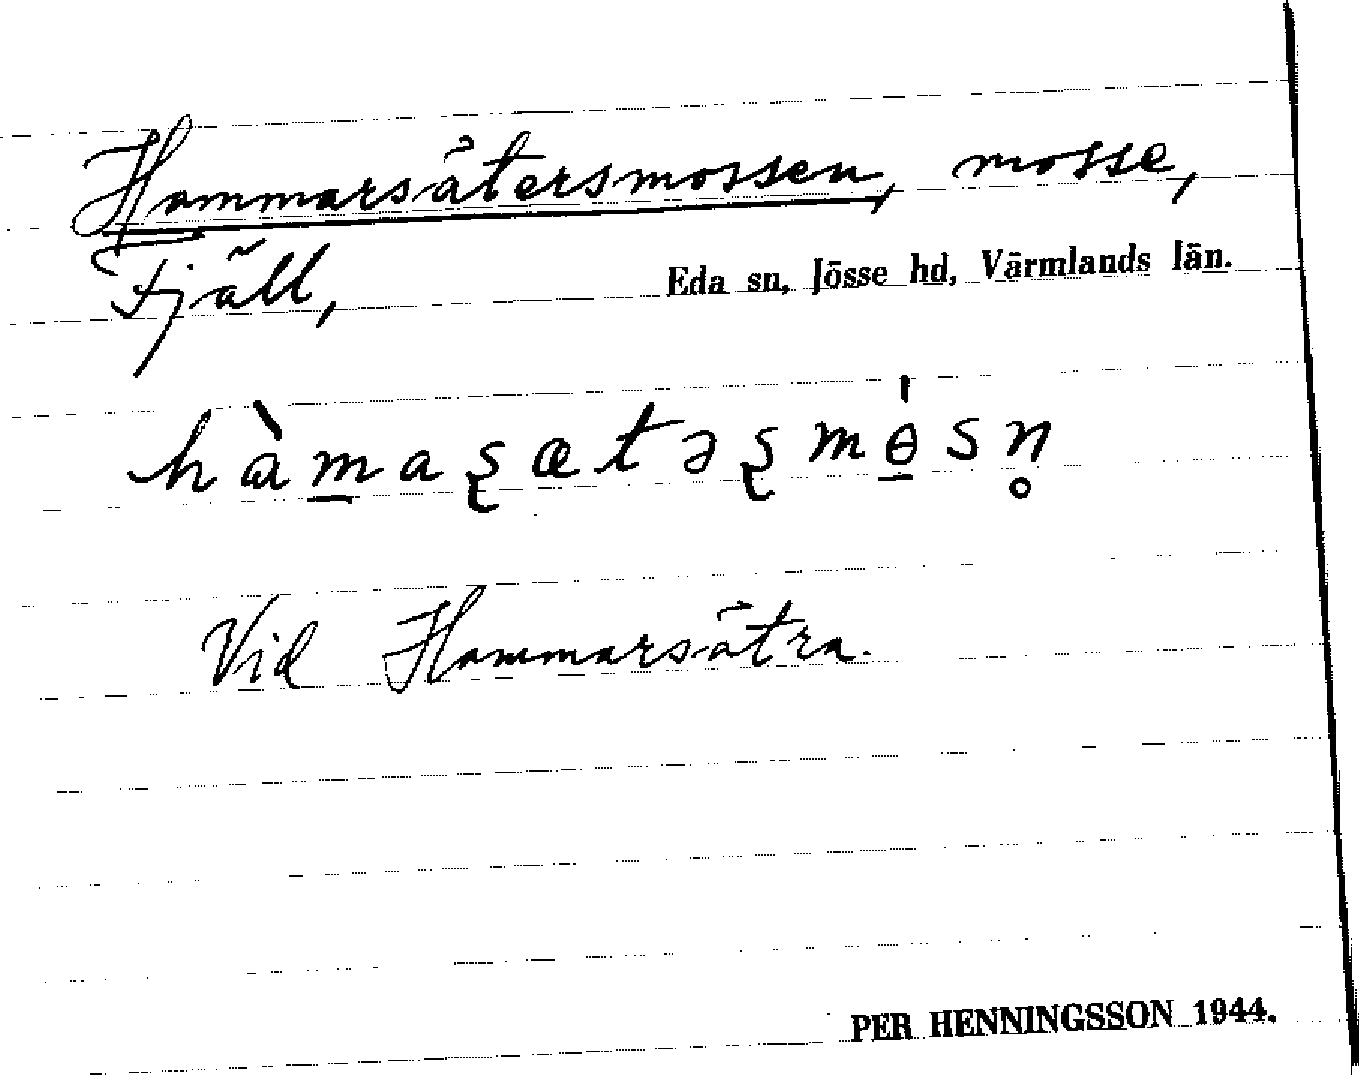 Hammarsätersmossen, mosse,
Fjäll, Eda sn, Jösse hd, Värmlands län.
hàm̲aʂætəʂmɵ̲́sn̥
Vid Hammarsätra.
PER HENNINGSSON 1944.